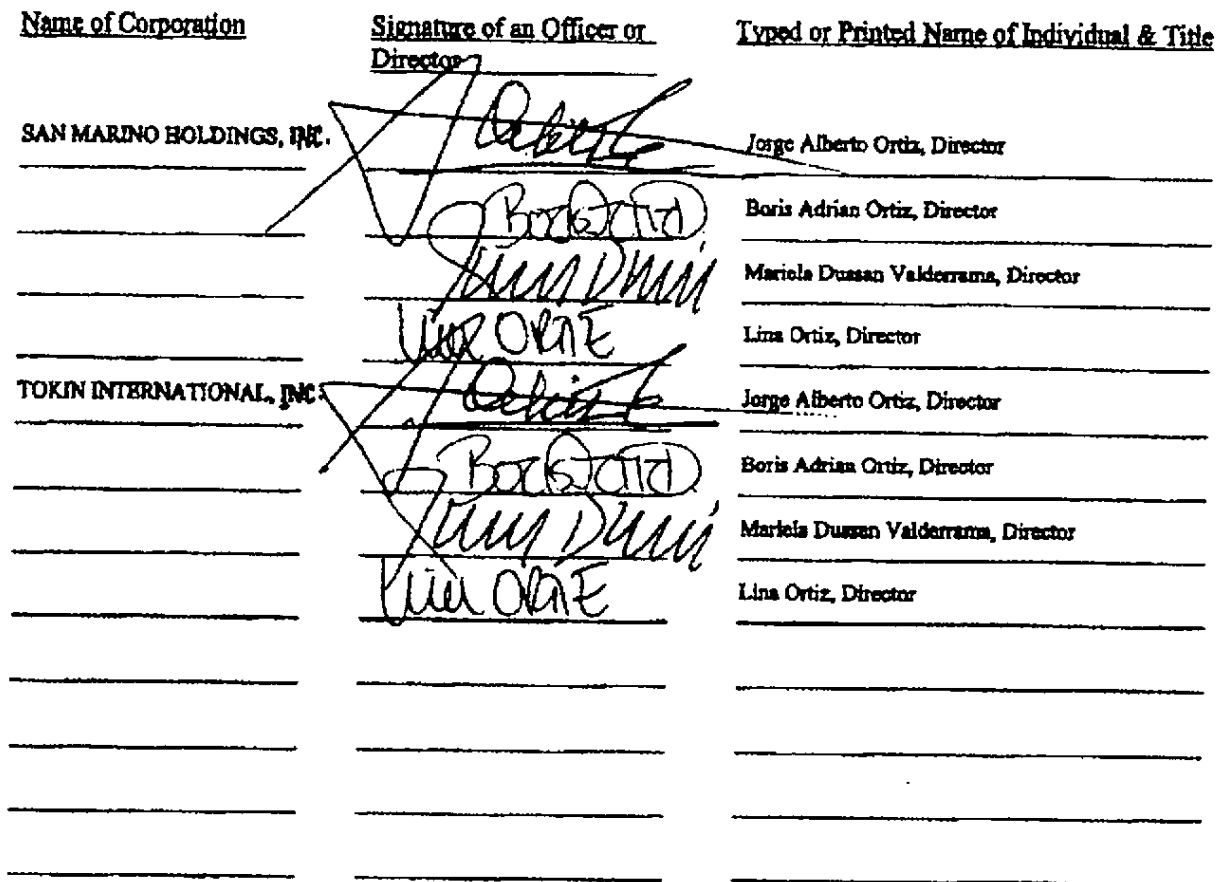 Name of Corporation
Signature of an Officer or
Director
Typed or Printed Name of Individual & Title
SAN MARINO HOLDINGS, INC.
Jorge Alberto Ortiz, Director
Boris Adrian Ortiz, Director
Mariela Dussan Valderrama, Director
Lina ORTIZ
Lina Ortiz, Director
TOKIN INTERNATIONAL, INC
Jorge Alberto Ortiz, Director
Boris Adrian Ortiz, Director
Mariela Dussan Valderrama, Director
Lina ORTIZ
Lina Ortiz, Director